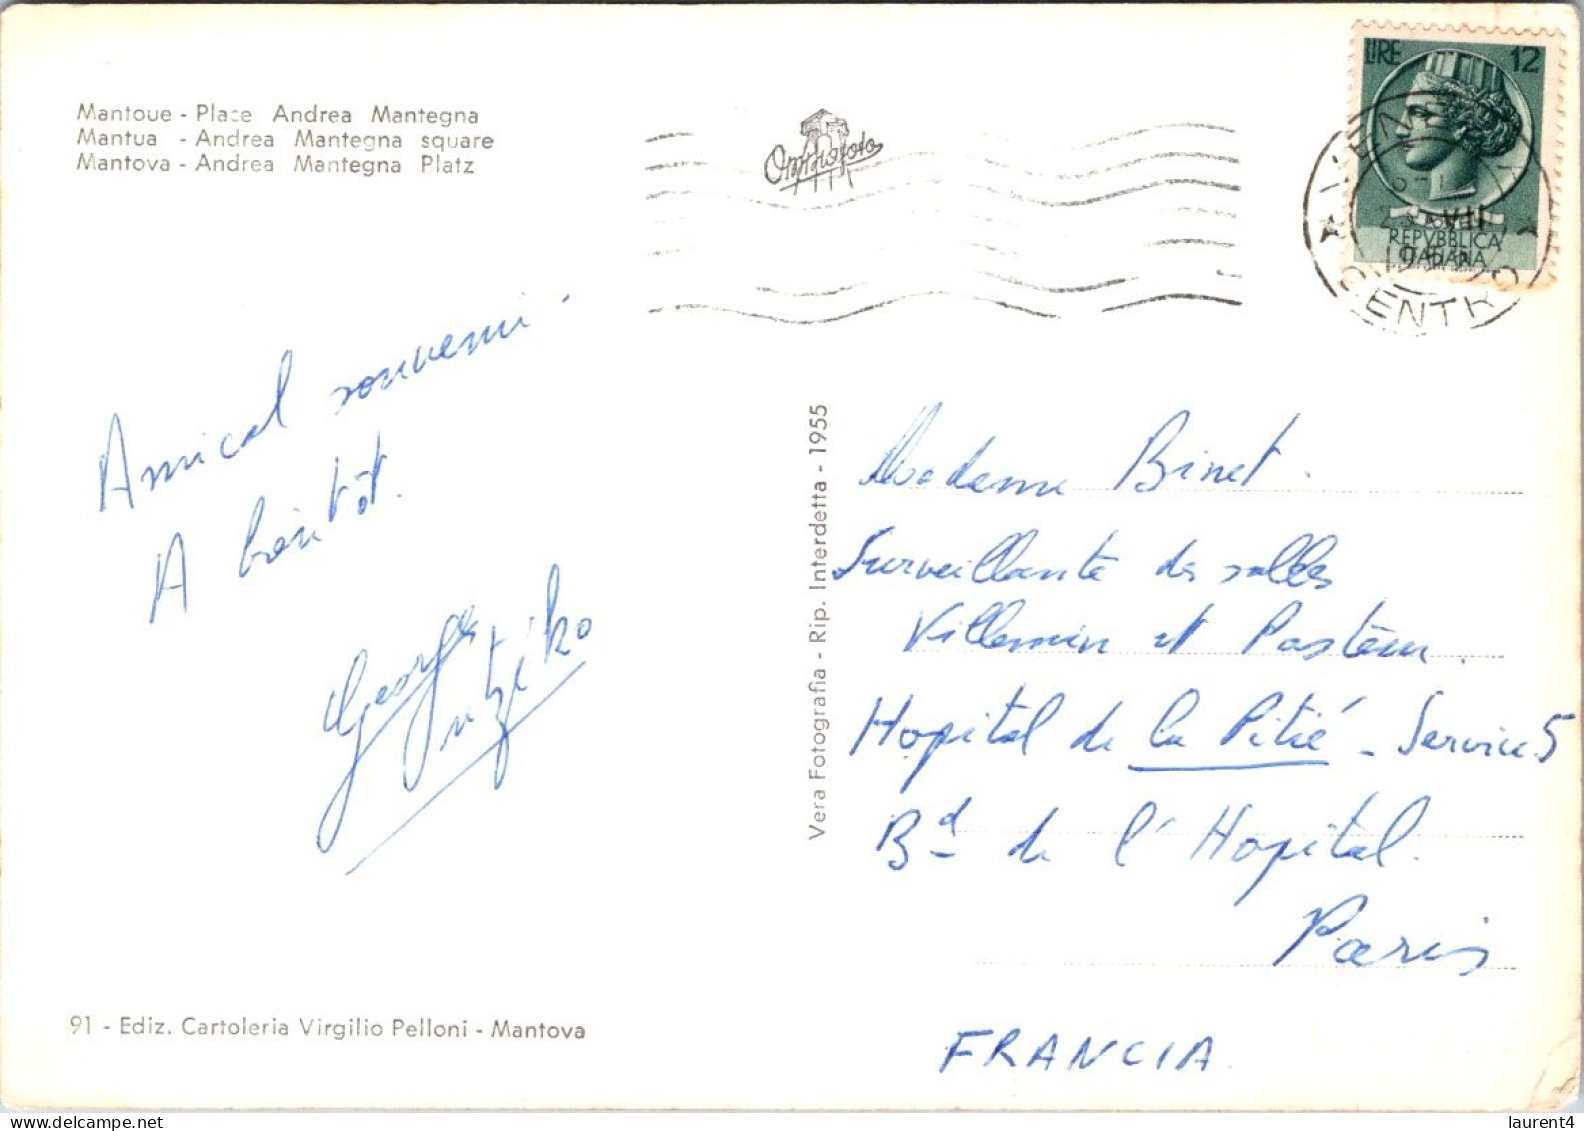 Mantoue - Place Andrea Mantegna
Mantua - Andrea Mantegna square
Mantova - Andrea Mantegna Platz
Omniafoto
LIRE 12
REPVBBLICA
ITALIANA
CENTRO
Amical souvenir.
A bientôt.
Georges
Vera Fotografia - Rip. Interdetta - 1955
Madame Binet.
Surveillante des salles
Villemin et Pasteur.
Hopital de la Pitié - Service 5
Bd de l'Hopital.
Paris
FRANCIA
91 - Ediz. Cartoleria Virgilio Pelloni - Mantova
laurent4